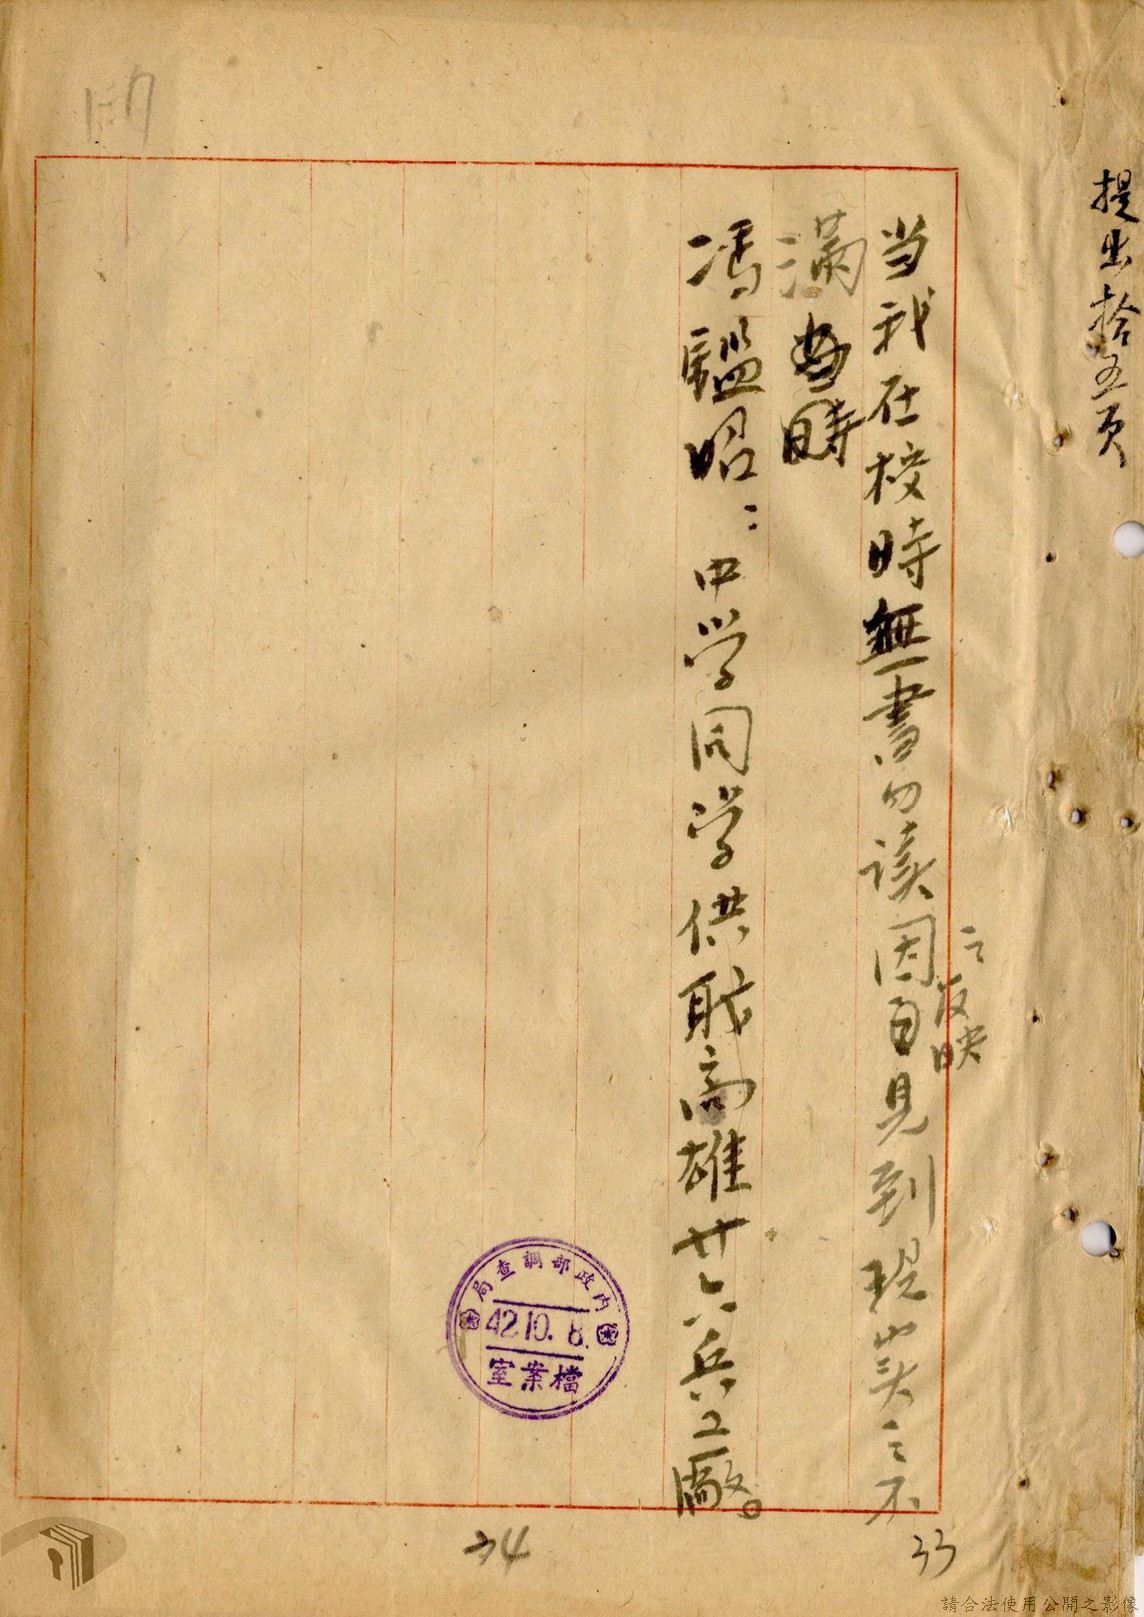 提出拾五頁
当我在校時無書可读因自見到現实之不
之反映
满当時
馮鑑昭：中学同学供职高雄廿六兵工廠。
內政部調查局
42.10.8.
檔案室
34
33
請合法使用公開之影像